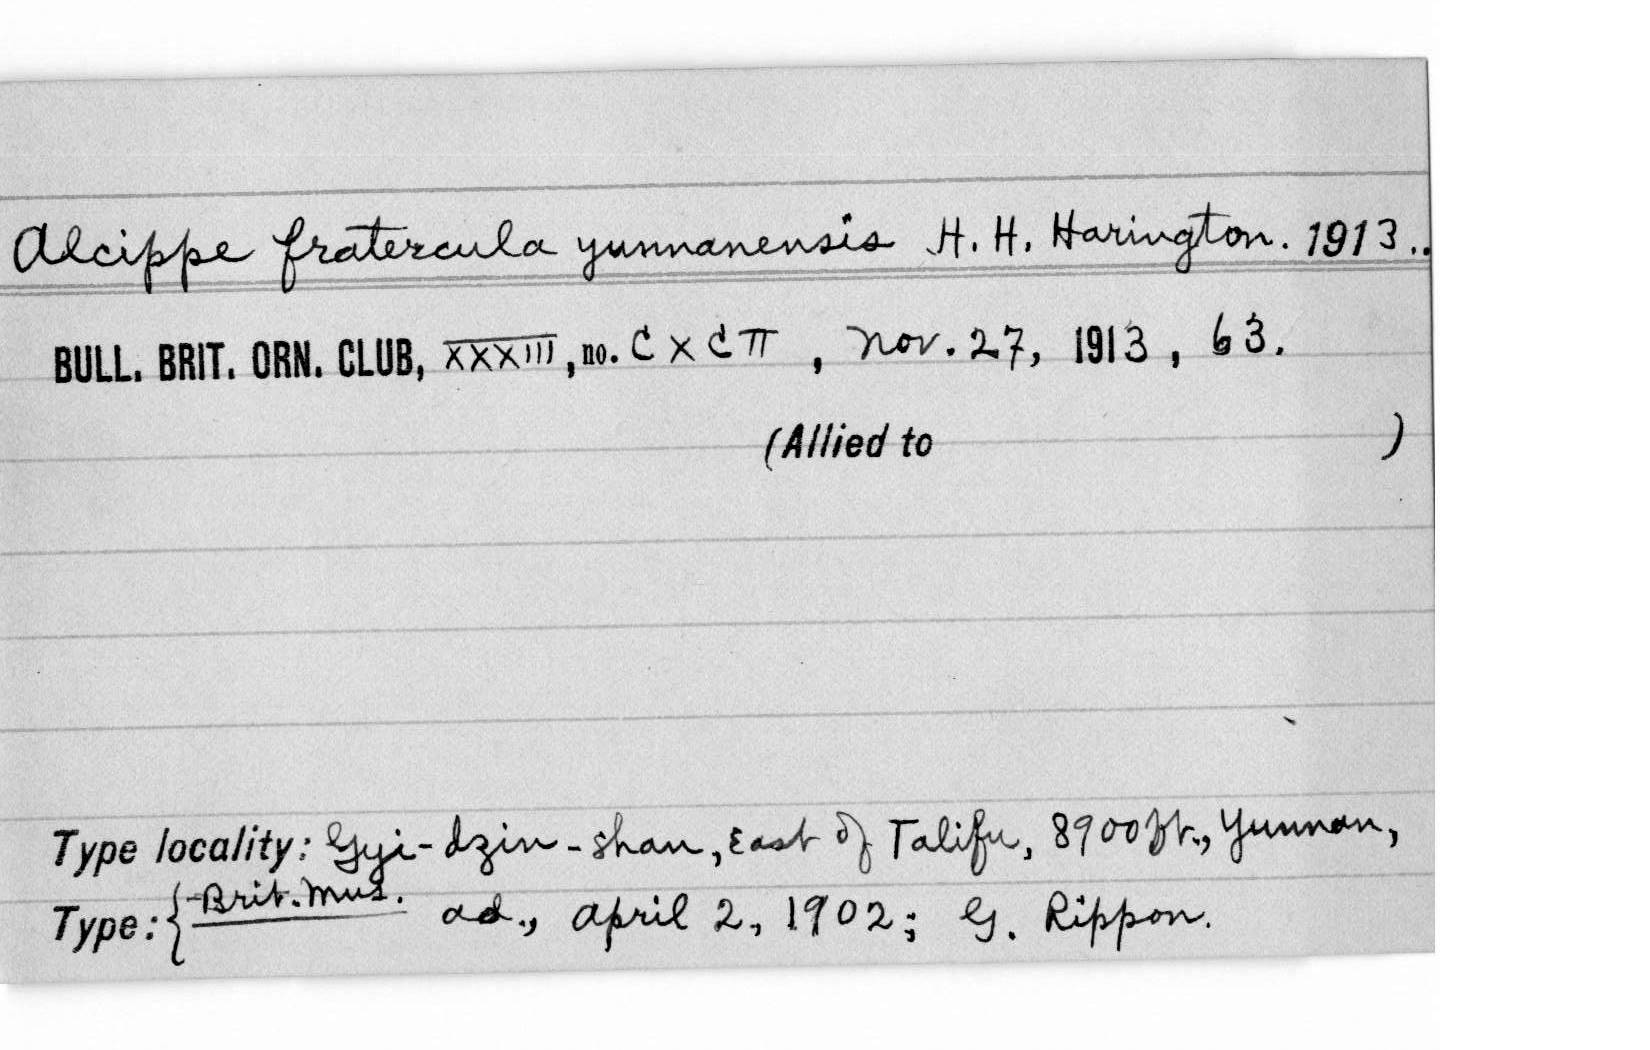 Alcippe fratercula yunnanensis H. H. Harington. 1913..
BULL. BRIT. ORN. CLUB, XXXIII, no. CXCII, Nov. 27, 1913, 63.
(Allied to )
Type locality: Gyi-dzin-shan, East of Talifu, 8900 ft., Yunnan,
Type: { Brit. Mus. ad., April 2, 1902; G. Rippon.